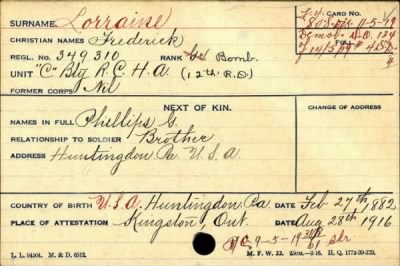 SURNAME Lorraine
CARD NO.
CHRISTIAN NAMES Frederick
REGL. NO. 349310 RANK Bomb.
FOLL.
UNIT "C" Bty R.C.H.A. (12th R.D.)
FORMER CORPS Nil
NEXT OF KIN. CHANGE OF ADDRESS
NAMES IN FULL Phillips G.
RELATIONSHIP TO SOLDIER Brother
ADDRESS Huntingdon Pa. U.S.A.
COUNTRY OF BIRTH U.S.A. Huntingdon. Pa DATE Feb 27th 1882
PLACE OF ATTESTATION Kingston, Ont. DATE Aug 28th 1916
9-5-19
L. L. 94304. M. & D. 6512. M. F. W. 22.